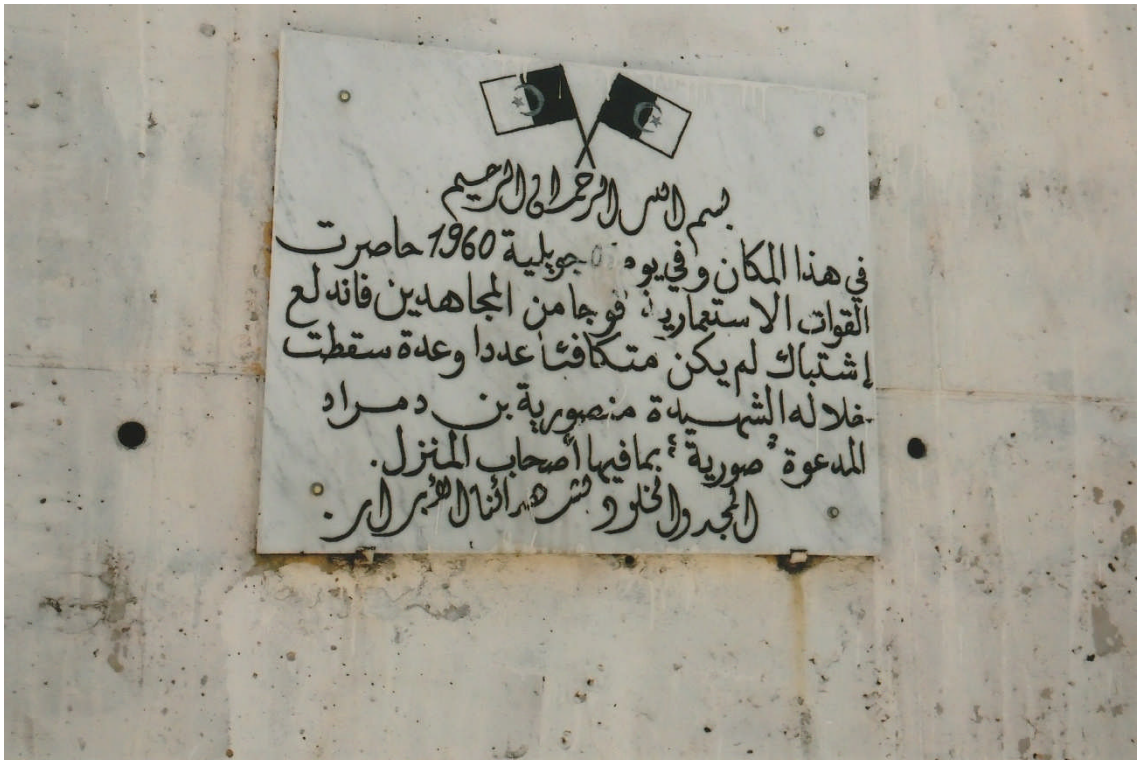 بسم الله الرحمان الرحيم
في هذا المكان وفي يوم جويلية 1960 حاصرت
القوات الاستعمارية فوجا من المجاهدين فاندلع
إشتباك لم يكن متكافئا عددا وعدة سقطت
خلاله الشهيدة منصورية بن دمراد
المدعوة "صورية" بمافيها أصحاب المنزل.
المجد والخلود لشهدائنا الأبرار.